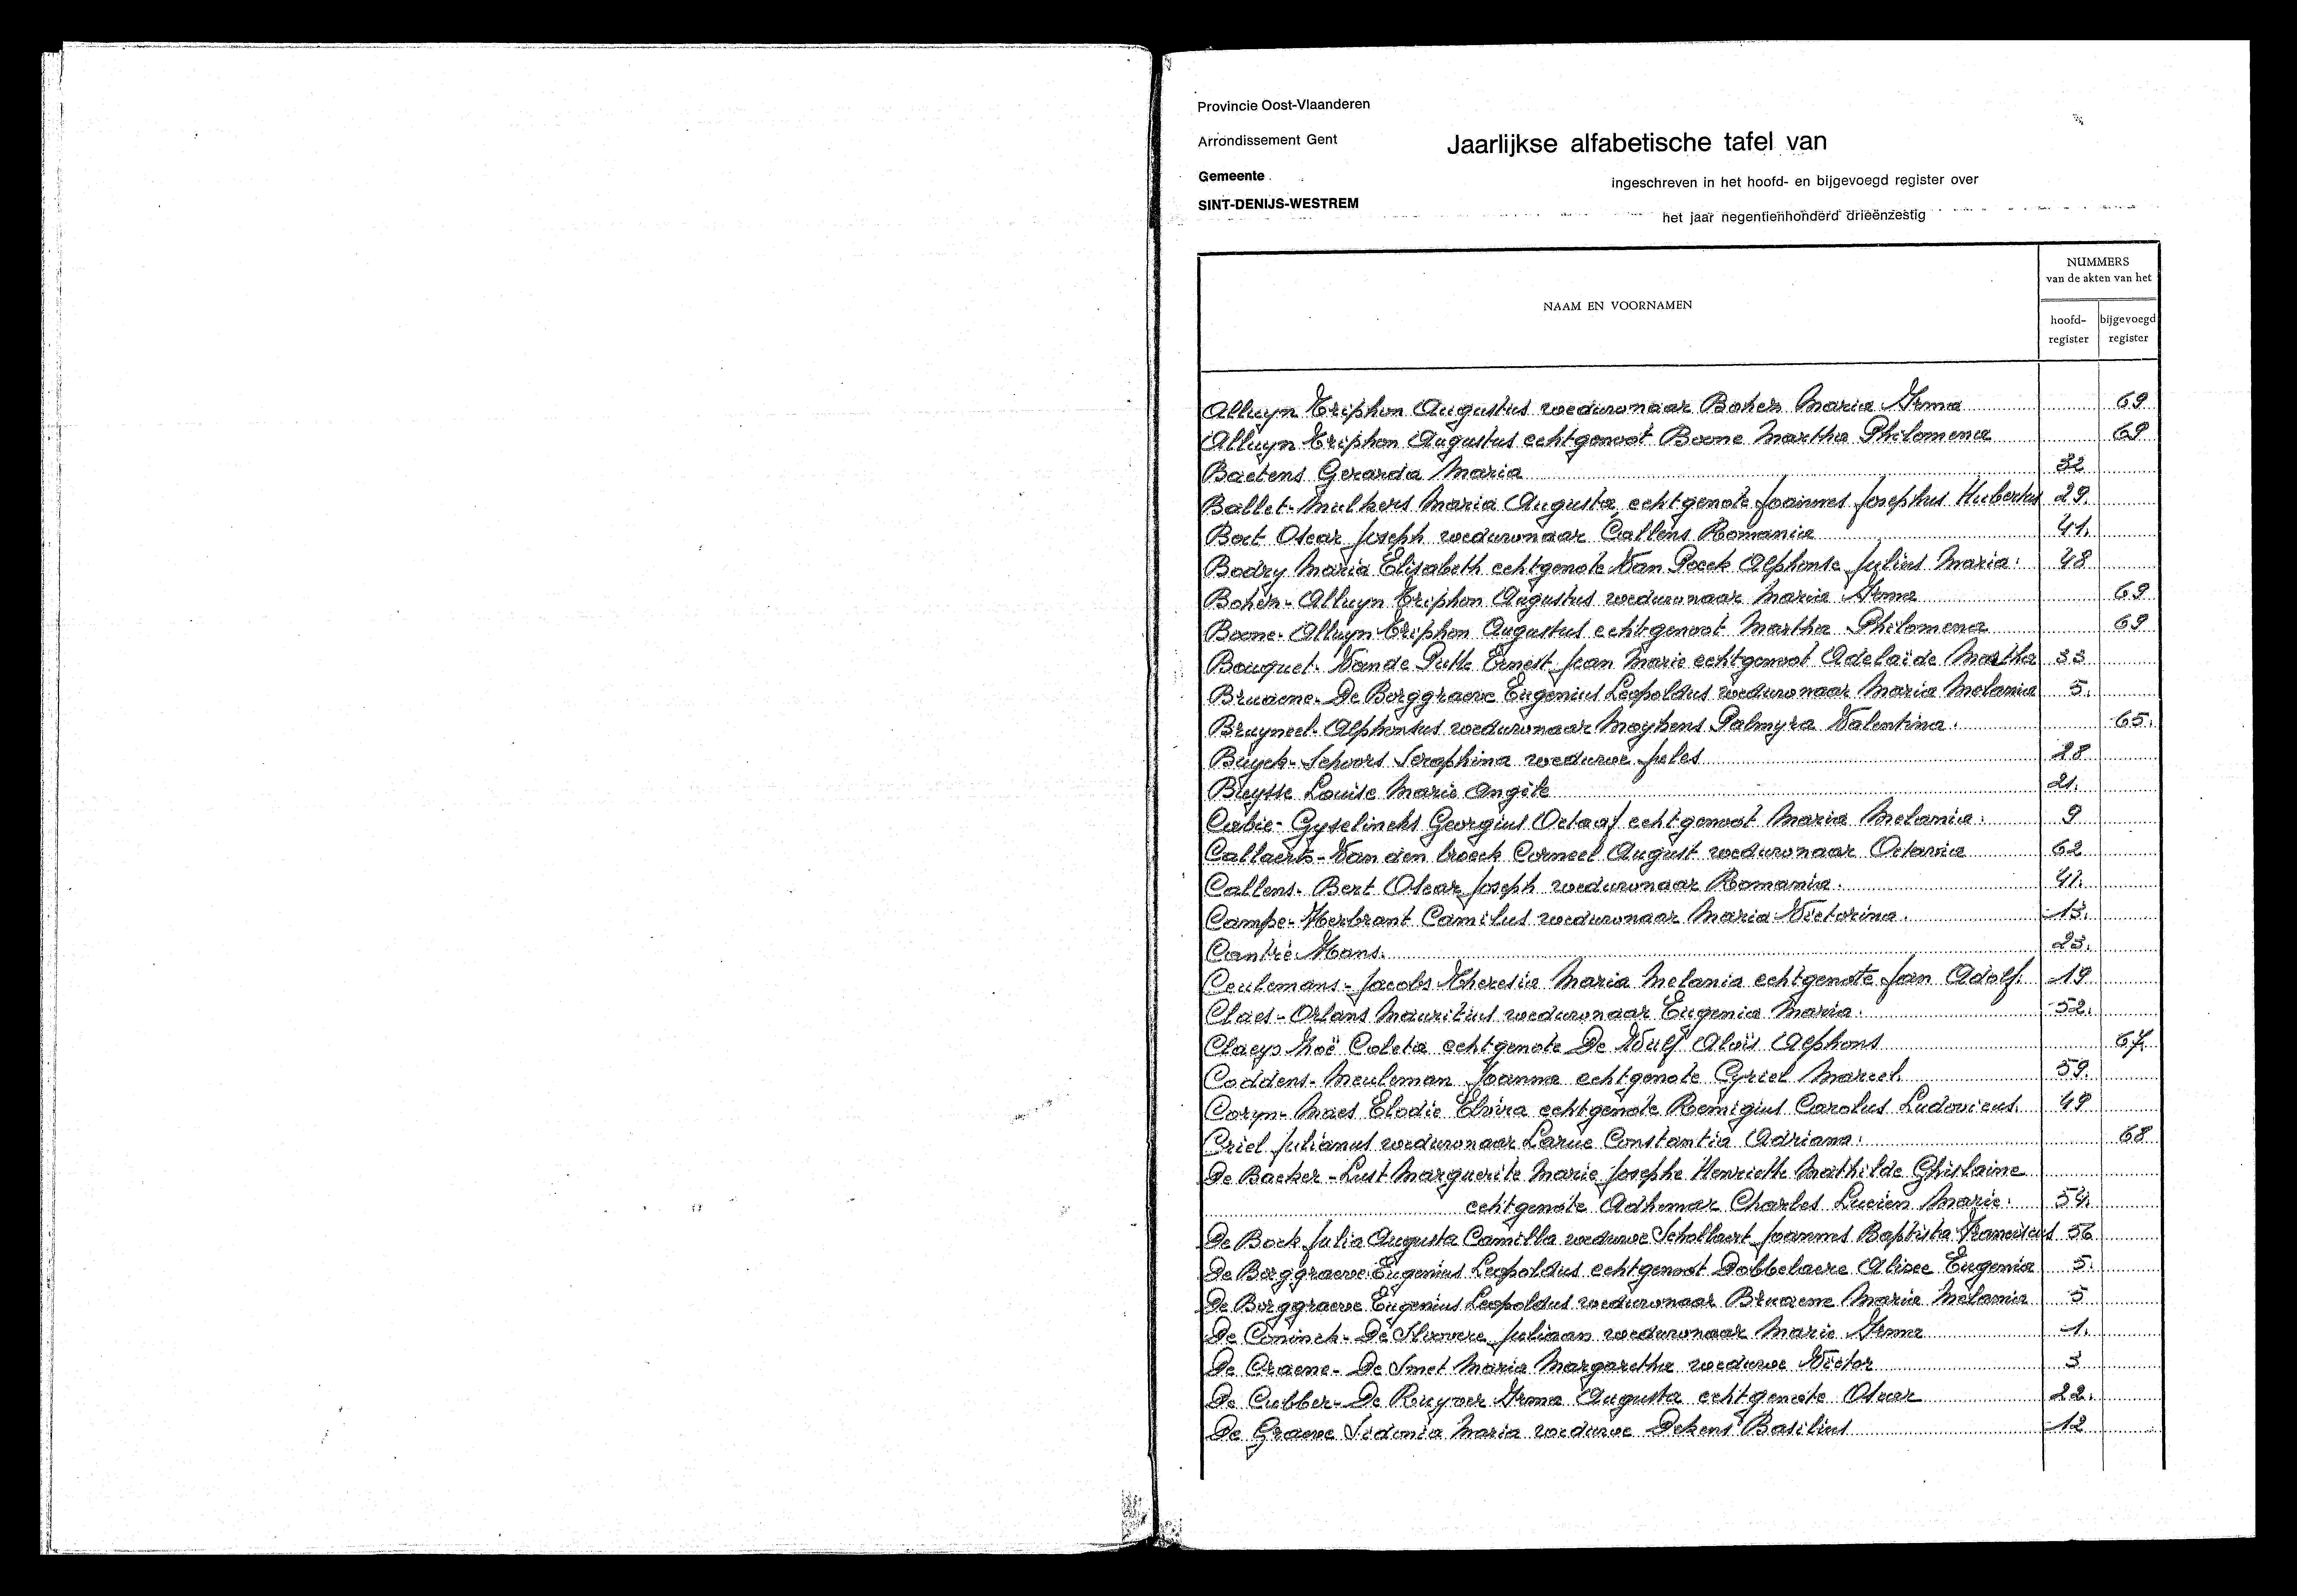 Provincie Oost-Vlaanderen
Arrondissement Gent
Jaarlijkse alfabetische tafel van
Gemeente
ingeschreven in het hoofd- en bijgevoegd register over
SINT-DENIJS-WESTREM
het jaar negentienhonderd drieënzestig
NUMMERS
van de akten van het
NAAM EN VOORNAMEN
hoofd-
register
bijgevoegd
register
Alluyn Triphon Augustus weduwnaar Boher Maria Irma 69
Alluyn Triphon Augustus echtgenoot Boone Martha Philomena 69
Baetens Gerarda Maria 32
Ballet-Mulkers Maria Augusta echtgenote Joannes Josephus Hubertus 29.
Bert Oscar Joseph weduwnaar Callens Romania 41.
Bodry Maria Elisabeth echtgenote Van Poeck Alphonse Julius Maria. 48
Boher-Alluyn Triphon Augustus weduwnaar Maria Irma 69
Boone-Alluyn Triphon Augustus echtgenoot Martha Philomena 69
Bouquet-Van de Putte Ernest Jean Marie echtgenoot Adelaïde Martha 33
Bruaene-De Borggraeve Eugenius Leopoldus weduwnaar Maria Melania 5.
Bruyneel-Alphonsus weduwnaar Moyhens Palmyra Valentina. 65.
Buyck-Schoors Seraphina weduwe Jules 28
Buysse Louise Marie Angèle 21.
Cabie-Gyselinchs Georgius Octaaf echtgenoot Maria Melania. 9
Callaerts-Van den broeck Corneel August weduwnaar Octavia 62
Callens-Bert Oscar Joseph weduwnaar Romania. 41.
Campe-Herbrant Camilus weduwnaar Maria Victorina. 13.
Cantré Hans. 23.
Ceulemans-Jacobs Theresia Maria Melania echtgenote Jan Adolf. 19
Claes-Orlans Mauritius weduwnaar Eugenia Maria. 52.
Claeys Zoë Coleta echtgenote De Wulf Aloïs Alphons 67.
Coddens-Meuleman Joanna echtgenote Cyriel Marcel. 59.
Coryn-Maes Elodie Elvira echtgenote Remigius Carolus Ludovicus. 49
Criel Julianus weduwnaar Larue Constantia Adriana. 68
De Backer-Lust Marguerite Marie Josephe Henriette Mathilde Ghislaine
echtgenote Adhemar Charles Lucien Marie. 54.
De Bock Julia Augusta Camilla weduwe Schollaert Joannes Baptista Franciscus 56
De Borggraeve Eugenius Leopoldus echtgenoot Dobbelaere Alisce Eugenia 5.
De Borggraeve Eugenius Leopoldus weduwnaar Bruaene Maria Melania 5
De Coninck-De Sloovere Juliaan weduwnaar Marie Irma 1.
De Craene-De Smet Maria Margaretha weduwe Victor 3
De Cubber-De Ruyver Irma Augusta echtgenote Oscar 22.
De Graeve Sidonia Maria weduwe Dekens Basilius 12